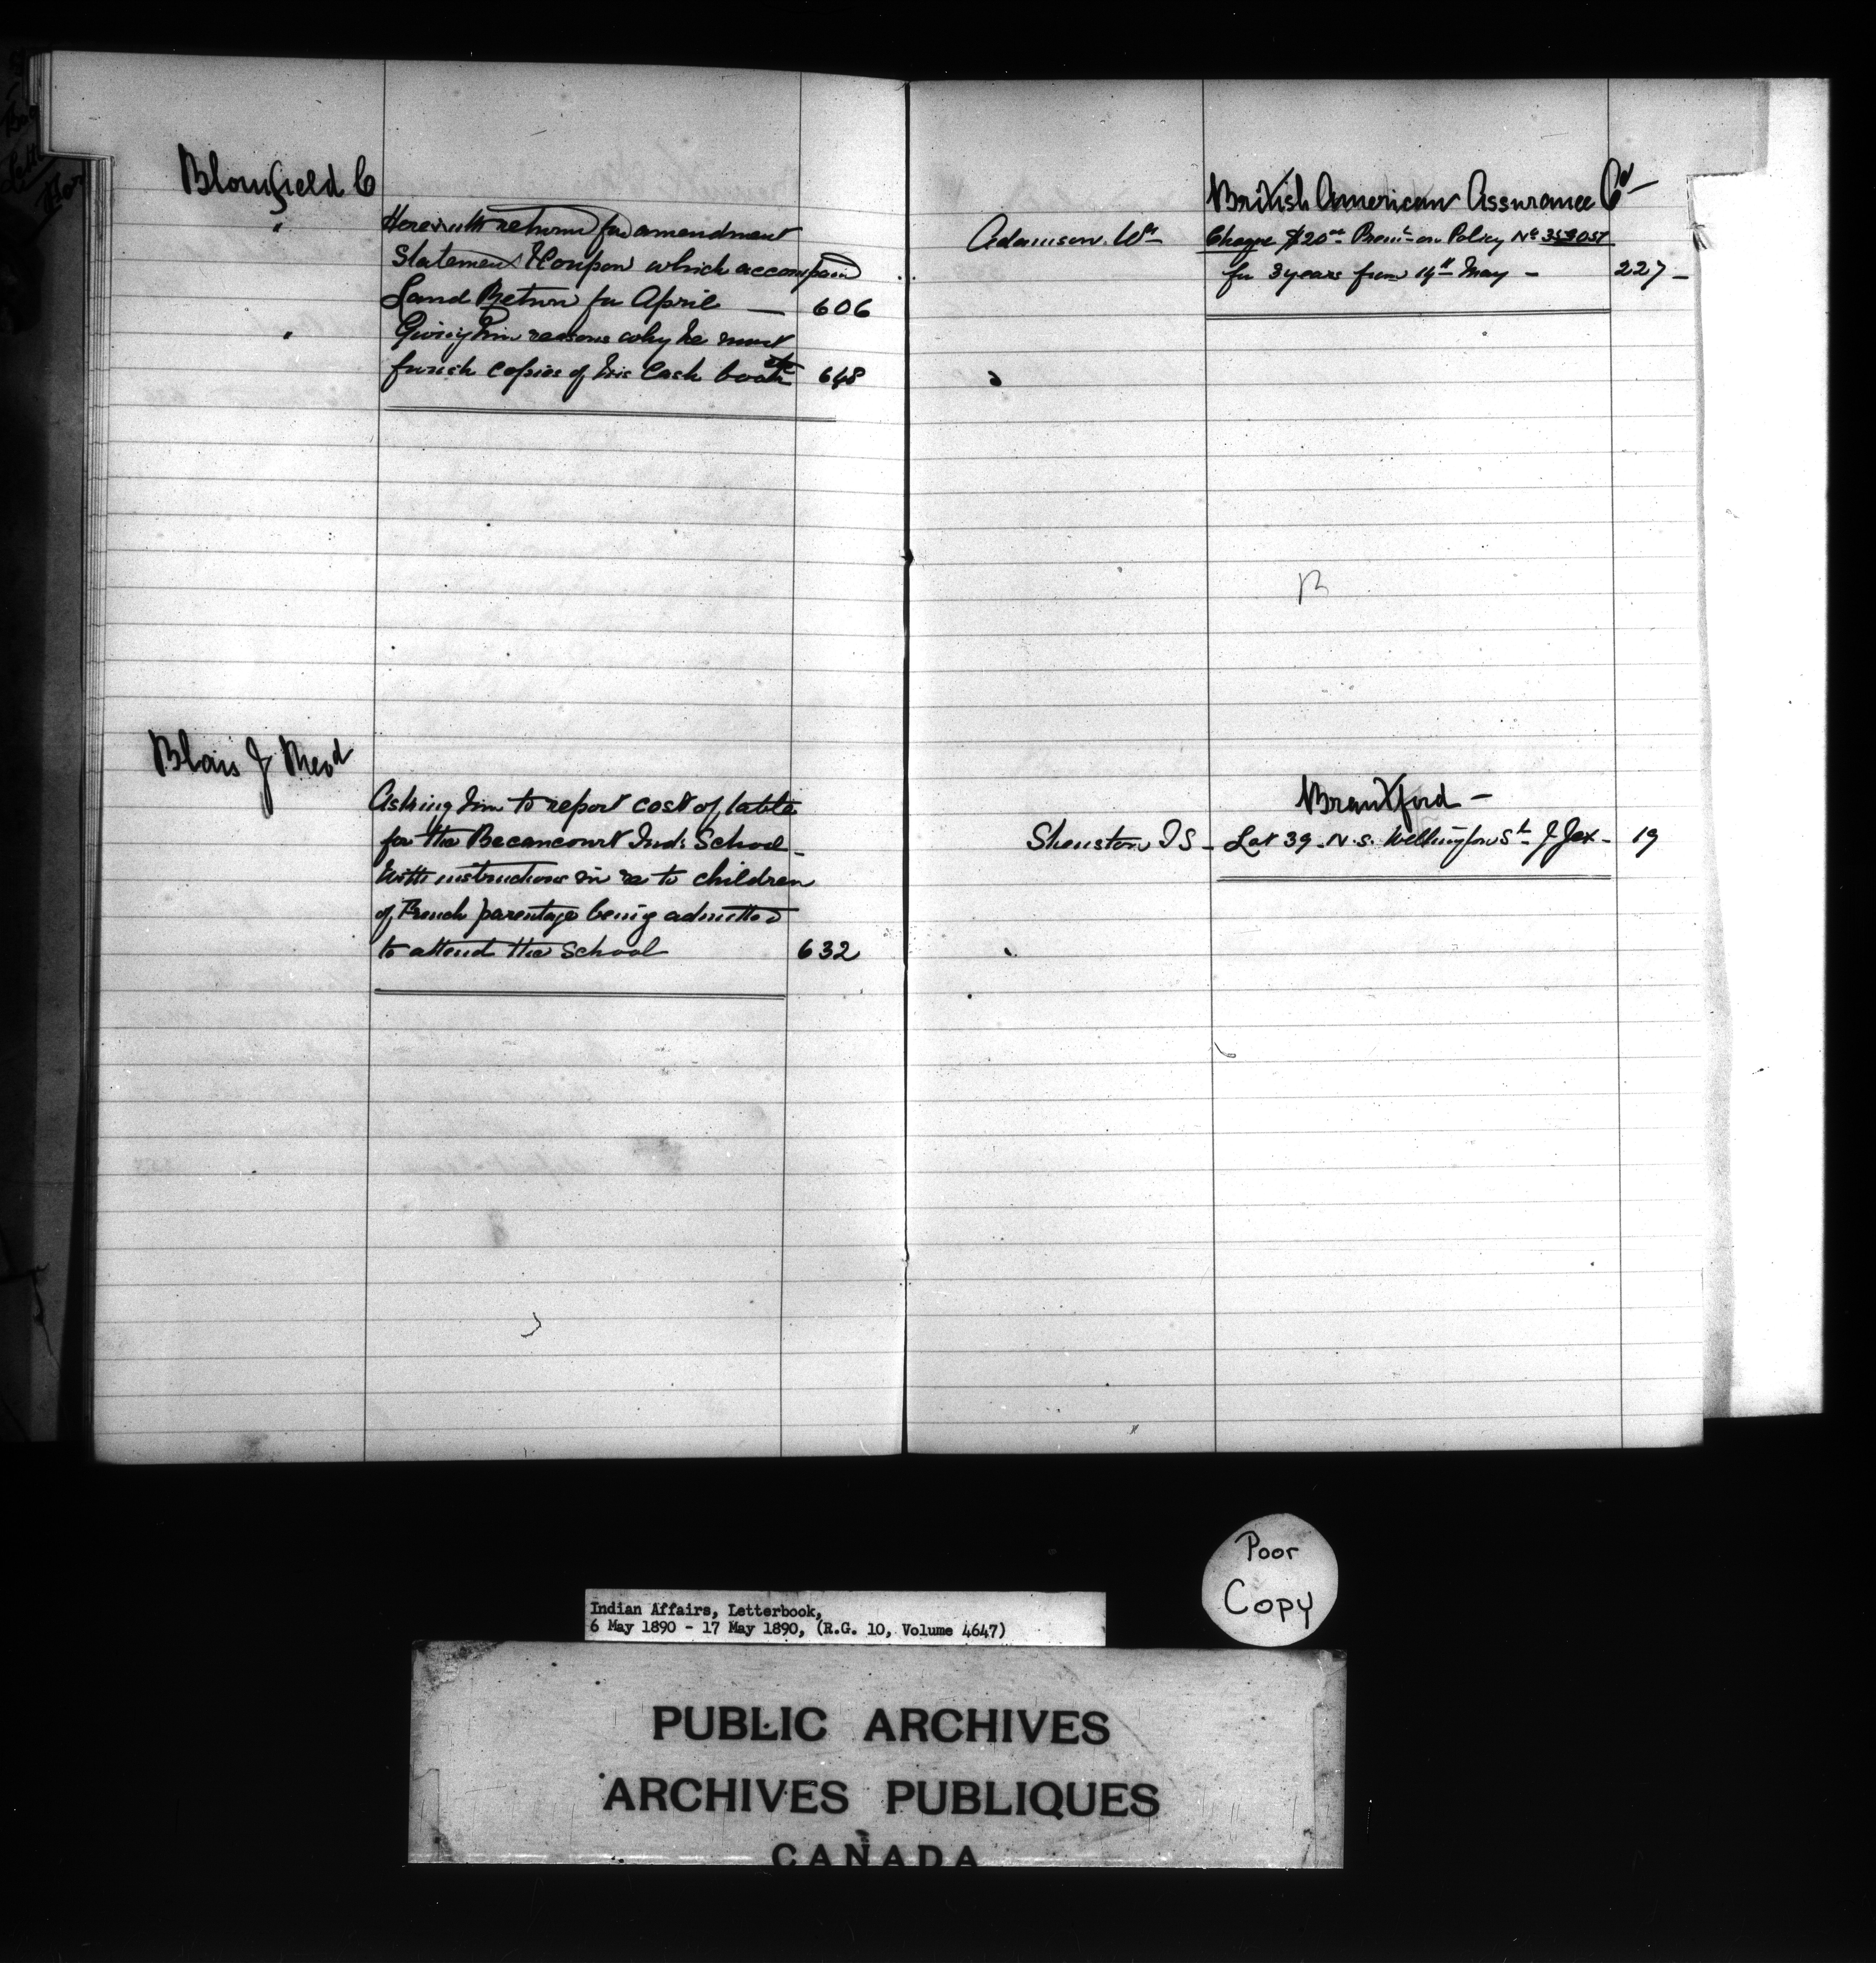 Blomfield C
" Herewith return for amendment
Statement & Coupon which accompd
Land Return for April — 606
" Giving him reasons why he must
furnish copies of his Cash book etc 648
Blais J Revd
Asking him to report cost of table
for the Becancourt Ind: School -
With instructions in re to children
of French parentage being admitted
to attend the School 632
British American Assurance Co -
Adamson Wm Cheque $20.00 Prem: on Policy No
for 3 years from 14th May - 227 -
Brantford -
Shenston T S - Lot 39 - N. S. Wellington St J Jex - 19
Poor
Copy
Indian Affairs, Letterbook,
6 May 1890 - 17 May 1890, (R.G. 10, Volume 4647)
PUBLIC ARCHIVES
ARCHIVES PUBLIQUES
CANADA